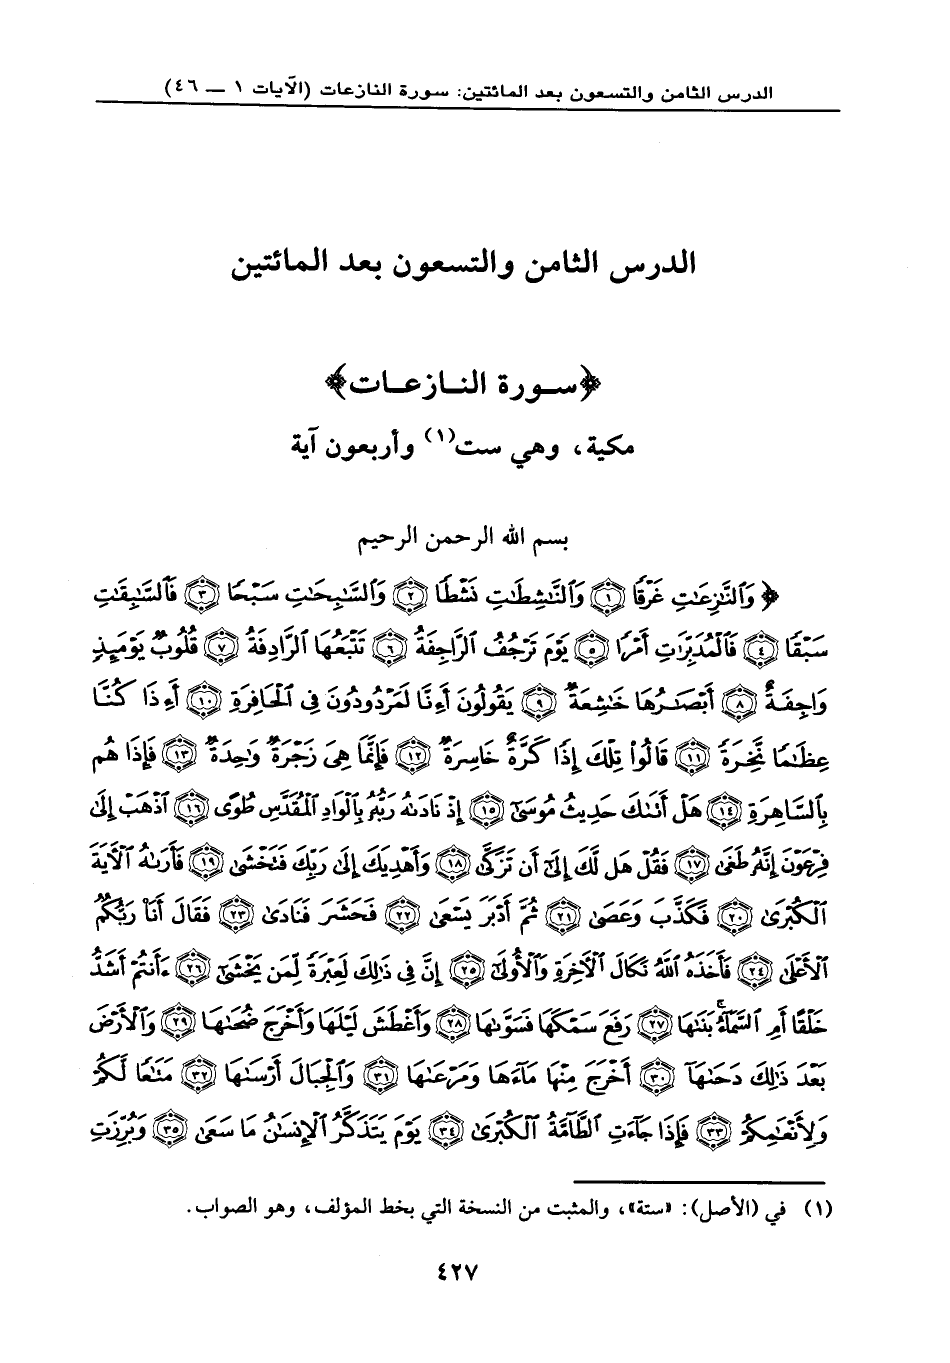 الدرس الثامن والتسعون بعد المائتين: سورة النازعات (الآيات ١ ــ ٤٦)
الدرس الثامن والتسعون بعد المائتين
﴿سـورة النـازعـات﴾
مكية، وهي ست(١) وأربعون آية
بسم الله الرحمن الرحيم
﴿ وَٱلنَّٰزِعَٰتِ غَرْقًا ۝١ وَٱلنَّٰشِطَٰتِ نَشْطًا ۝٢ وَٱلسَّٰبِحَٰتِ سَبْحًا ۝٣ فَٱلسَّٰبِقَٰتِ
سَبْقًا ۝٤ فَٱلْمُدَبِّرَٰتِ أَمْرًا ۝٥ يَوْمَ تَرْجُفُ ٱلرَّاجِفَةُ ۝٦ تَتْبَعُهَا ٱلرَّادِفَةُ ۝٧ قُلُوبٌ يَوْمَئِذٍ
وَاجِفَةٌ ۝٨ أَبْصَٰرُهَا خَٰشِعَةٌ ۝٩ يَقُولُونَ أَءِنَّا لَمَرْدُودُونَ فِي ٱلْحَافِرَةِ ۝١٠ أَءِذَا كُنَّا
عِظَٰمًا نَّخِرَةً ۝١١ قَالُوا۟ تِلْكَ إِذًا كَرَّةٌ خَاسِرَةٌ ۝١٢ فَإِنَّمَا هِيَ زَجْرَةٌ وَٰحِدَةٌ ۝١٣ فَإِذَا هُم
بِٱلسَّاهِرَةِ ۝١٤ هَلْ أَتَىٰكَ حَدِيثُ مُوسَىٰٓ ۝١٥ إِذْ نَادَىٰهُ رَبُّهُۥ بِٱلْوَادِ ٱلْمُقَدَّسِ طُوًى ۝١٦ ٱذْهَبْ إِلَىٰ
فِرْعَوْنَ إِنَّهُۥ طَغَىٰ ۝١٧ فَقُلْ هَل لَّكَ إِلَىٰٓ أَن تَزَكَّىٰ ۝١٨ وَأَهْدِيَكَ إِلَىٰ رَبِّكَ فَتَخْشَىٰ ۝١٩ فَأَرَىٰهُ ٱلْآيَةَ
ٱلْكُبْرَىٰ ۝٢٠ فَكَذَّبَ وَعَصَىٰ ۝٢١ ثُمَّ أَدْبَرَ يَسْعَىٰ ۝٢٢ فَحَشَرَ فَنَادَىٰ ۝٢٣ فَقَالَ أَنَا۠ رَبُّكُمُ
ٱلْأَعْلَىٰ ۝٢٤ فَأَخَذَهُ ٱللَّهُ نَكَالَ ٱلْآخِرَةِ وَٱلْأُولَىٰٓ ۝٢٥ إِنَّ فِي ذَٰلِكَ لَعِبْرَةً لِّمَن يَخْشَىٰٓ ۝٢٦ ءَأَنتُمْ أَشَدُّ
خَلْقًا أَمِ ٱلسَّمَآءُ ۚ بَنَىٰهَا ۝٢٧ رَفَعَ سَمْكَهَا فَسَوَّىٰهَا ۝٢٨ وَأَغْطَشَ لَيْلَهَا وَأَخْرَجَ ضُحَىٰهَا ۝٢٩ وَٱلْأَرْضَ
بَعْدَ ذَٰلِكَ دَحَىٰهَآ ۝٣٠ أَخْرَجَ مِنْهَا مَآءَهَا وَمَرْعَىٰهَا ۝٣١ وَٱلْجِبَالَ أَرْسَىٰهَا ۝٣٢ مَتَٰعًا لَّكُمْ
وَلِأَنْعَٰمِكُمْ ۝٣٣ فَإِذَا جَآءَتِ ٱلطَّآمَّةُ ٱلْكُبْرَىٰ ۝٣٤ يَوْمَ يَتَذَكَّرُ ٱلْإِنسَٰنُ مَا سَعَىٰ ۝٣٥ وَبُرِّزَتِ
(١) في (الأصل): «ستة»، والمثبت من النسخة التي بخط المؤلف، وهو الصواب.
٤٢٧